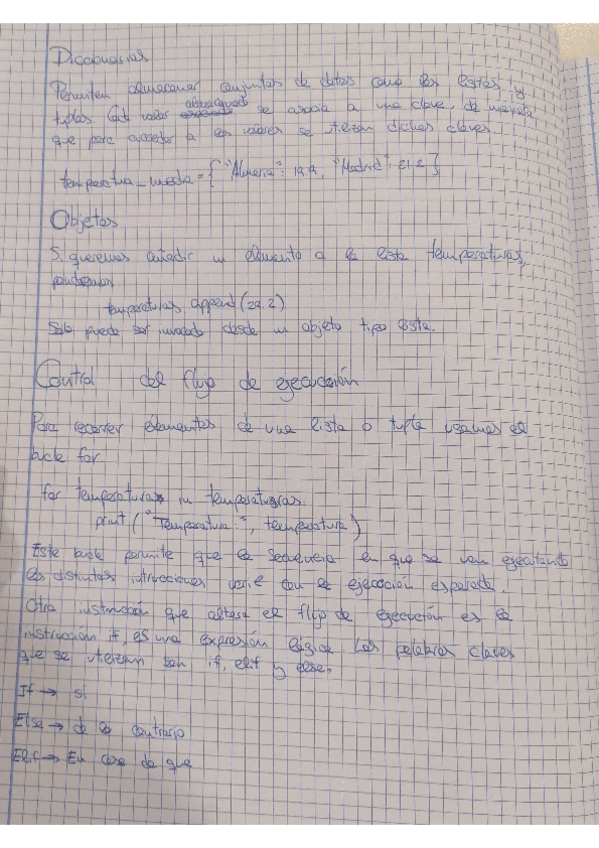 Diccionarios
Permiten almacenar conjuntos de datos como las listas y
tuplas. Cada valor almacenado se asocia a una clave, de manera
que para acceder a los valores se utilizan dichas claves
temperatura_media = { "Almería": 19.9, "Madrid": 21.2 }
Objetos
Si queremos añadir un elemento a la lista temperaturas,
podemos
temperaturas.append(22.2)
Solo puede ser invocado desde un objeto tipo lista.
Control del flujo de ejecución
Para recorrer elementos de una lista o tupla usamos el
bucle for
for temperaturas in temperaturas
print ("Temperatura", temperatura)
Este bucle permite que la secuencia en que se van ejecutando
las distintas intrucciones varíe con la ejecución esperada.
Otra instrucción que altera el flujo de ejecución es la
instrucción if, es una expresión lógica. Las palabras claves
que se utilizan son if, elif y else.
If → si
Else → de lo contrario
Elif → En caso de que